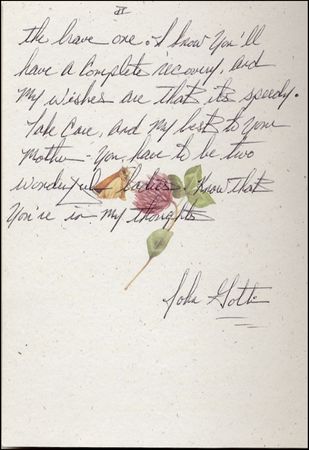 II
the brave one. I know You'll
have a complete recovery, and
My wishes are that its speedy.
Take Care, and my best to your
Mother - You have to be two
wonderful ladies. Know that
You're in my thoughts
John Gotti